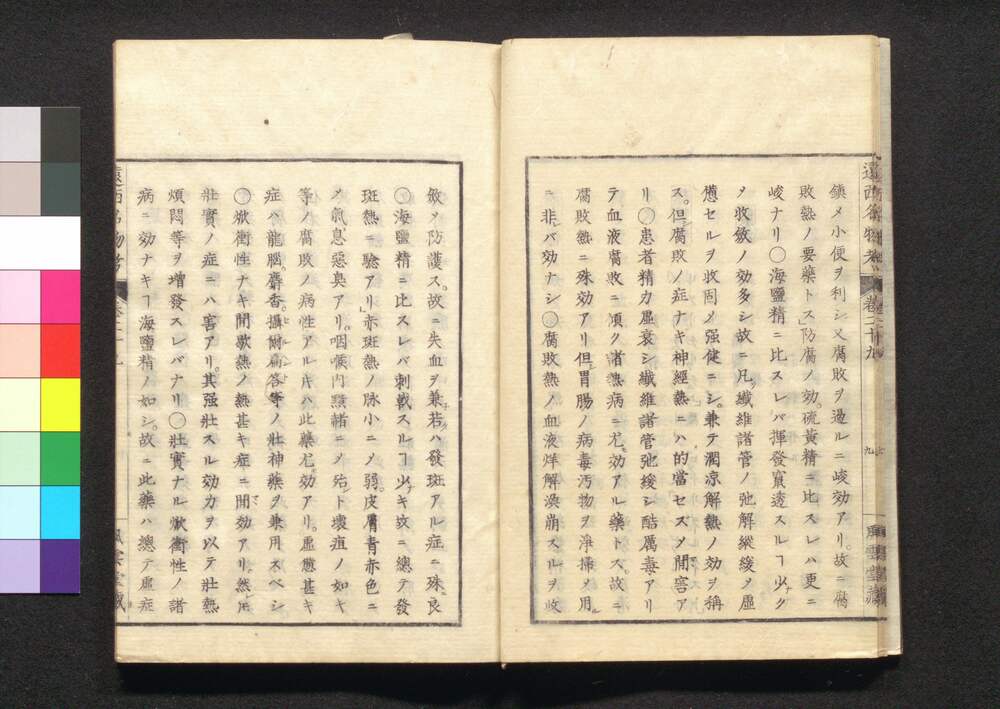 遠西名物考 卷二十九
鎮メ小便ヲ利シ又腐敗ヲ過ルニ峻効アリ。故ニ腐
敗熱ノ要藥トス」防腐ノ効。硫黄精ニ比スレハ更ニ
峻ナリ〇海鹽精ニ比スレバ揮發竄透スルヿ少ナク
メ收斂ノ効多シ故ニ凡ソ纖維諸管ノ弛解縱緩メ虛
憊セルヲ收固メ强健ニシ。兼テ凊涼解熱ノ効ヲ稱
ス。但シ腐敗ノ症ナキ神經熱ニハ的當セズメ間害ア
リ〇患者精力虛衰シ纖維諸管弛緩シ酷厲毒アリ
テ血液腐敗ニ傾ク諸熱病ニ尤モ効アル藥トス。故ニ
腐敗熱ニ殊効アリ但シ胃腸ノ病毒汚物ヲ淨掃メ用ル
ニ非レバ効ナシ〇腐敗熱ノ血液烊解渙崩スルヲ收
斂メ防護ス。故ニ失血ヲ兼若クハ發斑アル症ニ殊ニ良
〇海鹽精ニ比スレバ刺戟スルヿ少ナキ故ニ總テ發
斑熱ニ驗アリ」赤斑熱ノ脉小ニメ弱。皮膚青赤色ニ
メ氣息惡臭アリ。咽喉内黯赭ニメ殆ト壞疽ノ如キ
等ノ腐敗ノ病性アルキハ此藥尤モ効アリ。虛憊甚キ
症ハ龍腦。麝香。攝爾扁答等ノ壯神藥ヲ兼用スベシ
〇焮衝性ナキ間歇熱ノ熱甚キ症ニ間効アリ然𪜈
壯實ノ症ニハ害アリ。其强壯スル効力ヲ以テ壯熱
煩悶等ヲ增發スレバナリ〇壯實ナル焮衝性ノ諸
病ニ効ナキヿ海鹽精ノ如シ。故ニ此藥ハ總テ虛症